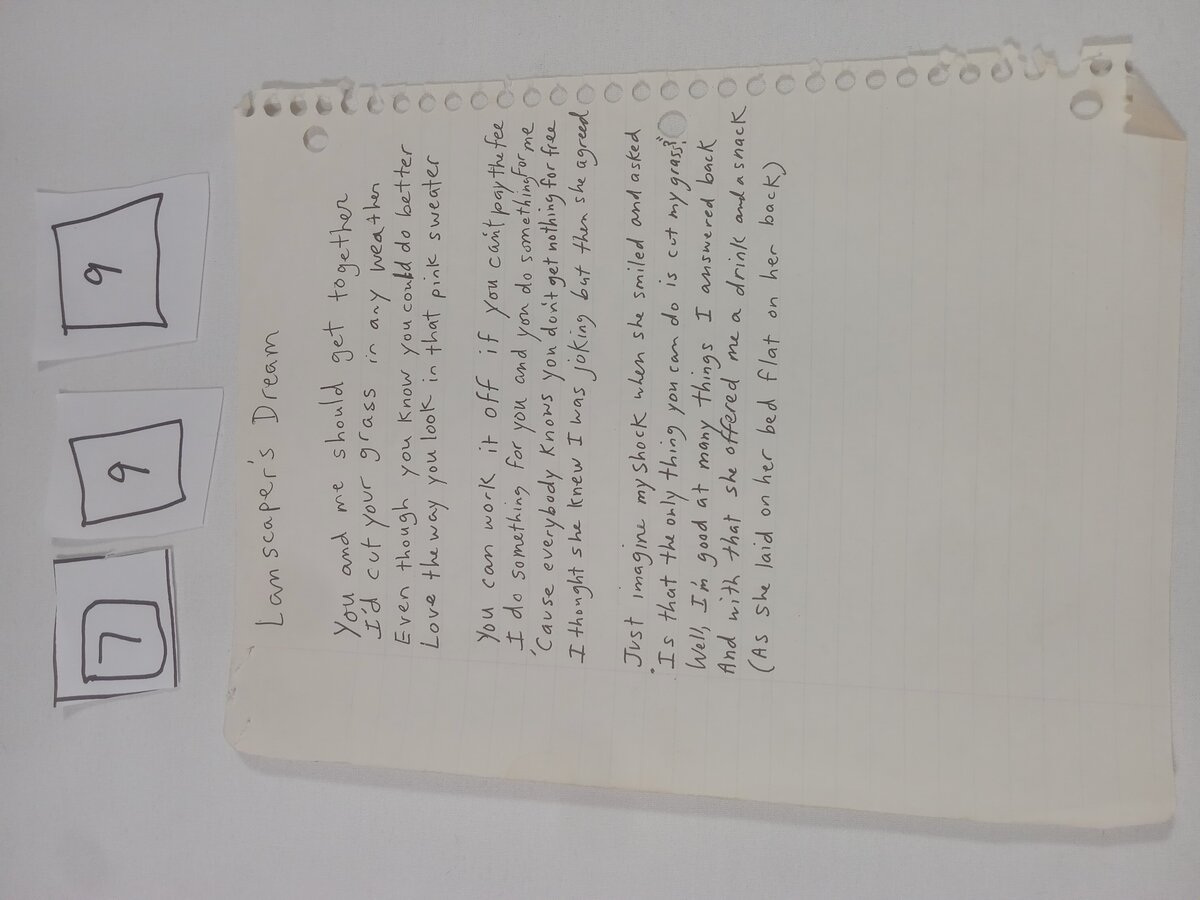 7 9 9
Lanscaper's Dream
You and me should get together
I'd cut your grass in any weather
Even though you know you could do better
Love the way you look in that pink sweater
You can work it off if you can't pay the fee
I do something for you and you do something for me
'Cause everybody knows you don't get nothing for free
I thought she knew I was joking but then she agreed
Just imagine my shock when she smiled and asked
"Is that the only thing you can do is cut my grass?"
Well, I'm good at many things I answered back
And with that she offered me a drink and a snack
(As she laid on her bed flat on her back)